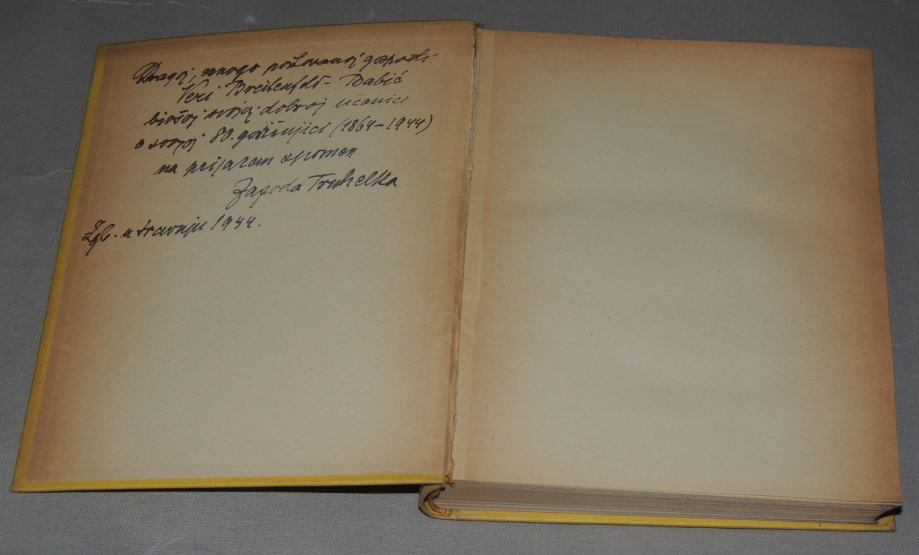 Dragoj, mnogo poštovanoj gospodi
Veri Breitenfeld-Babić
bivšoj svojoj dobroj učenici
o svojoj 80. godišnjici (1864-1944)
na prijazan spomen
Jagoda Truhelka
Zgb. u travnju 1944.